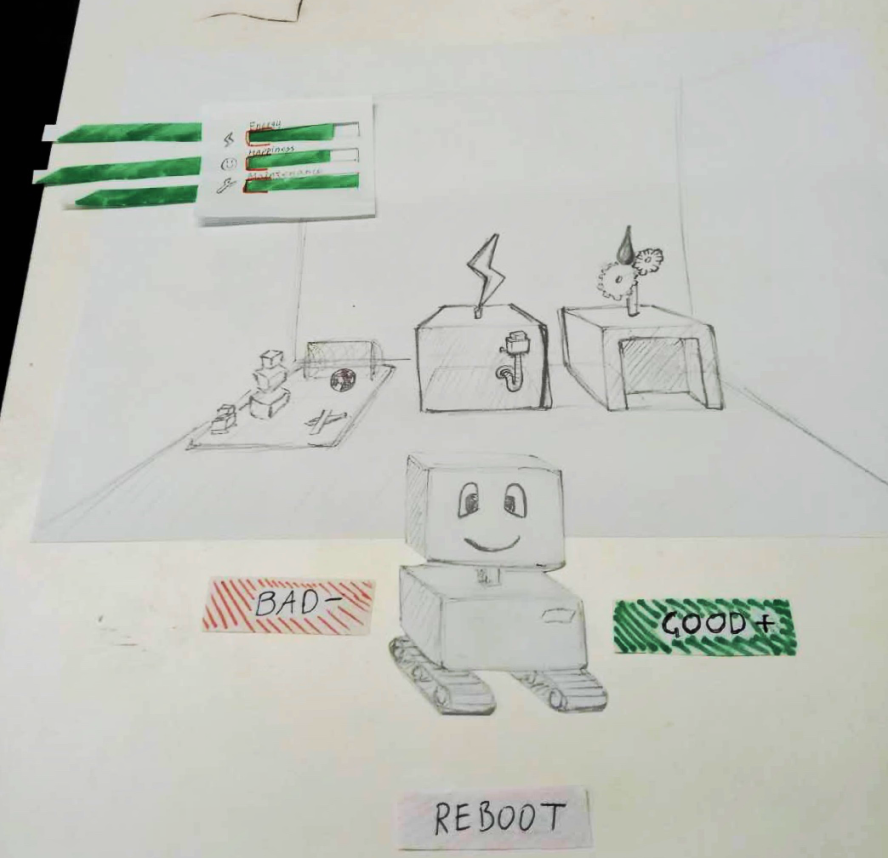 Energy
Happiness
Maintenance
BAD-
GOOD+
REBOOT